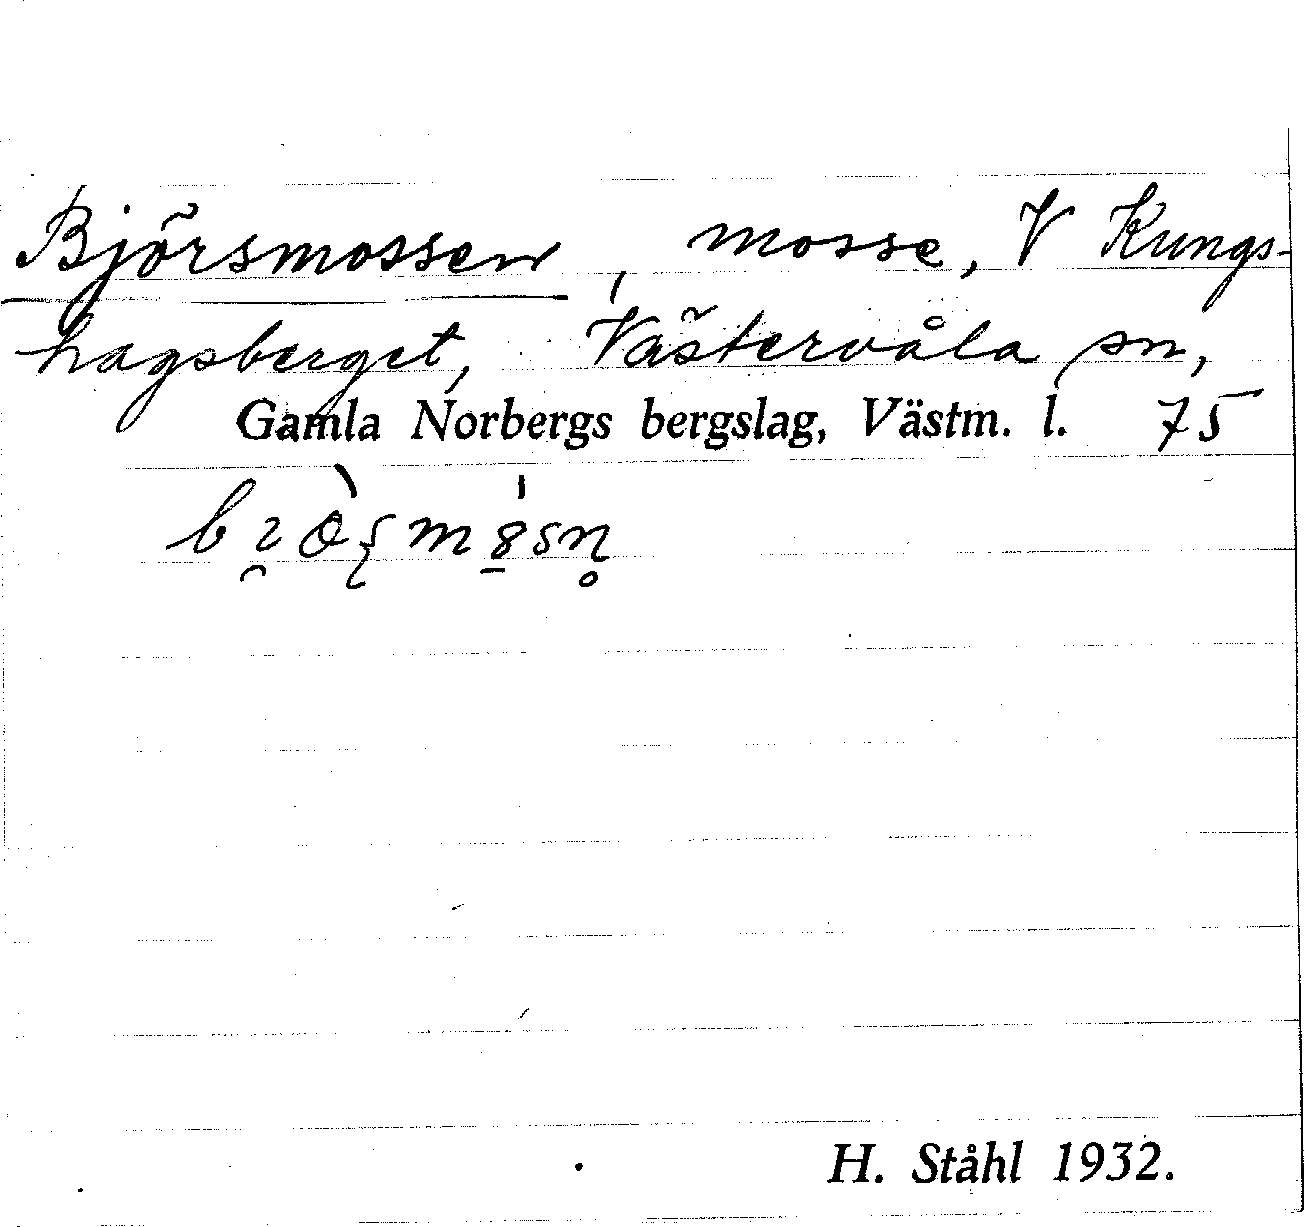 Björsmossen, mosse, V Kungs-
hagsberget, Västervåla sn,
Gamla Norbergs bergslag, Västm. l. 75
H. Ståhl 1932.